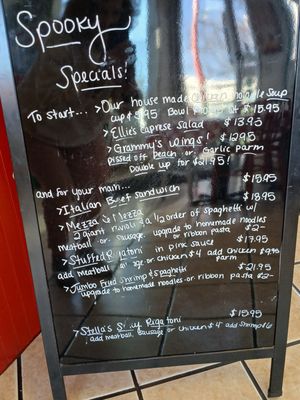 Spooky
Specials!
To start... > Our house made chicken noodle Soup
cup $ 95 Bowl $15.95
> Ellie's caprese salad $13.95
> Grammy's wings! $12.95
pissed off peach or Garlic parm
Double up for $21.95!
and for your main...
> Italian Beef Sandwich $15.95
> Mezza & Mezza $18.95
2 giant ravioli & a 1/2 order of spaghetti w/
meatball or sausage. upgrade to homemade noodles
or ribbon pasta $2-
> Stuffed Rigatoni in pink sauce $17.95
add meatball or sge or chicken $4 add chicken parm
> Jumbo Fried Shrimp & Spaghetti $21.95
upgrade to homemade noodles or ribbon pasta $2-
> Stella's Rigatoni $15.95
add meatball sausage or chicken $4 add shrimp $6